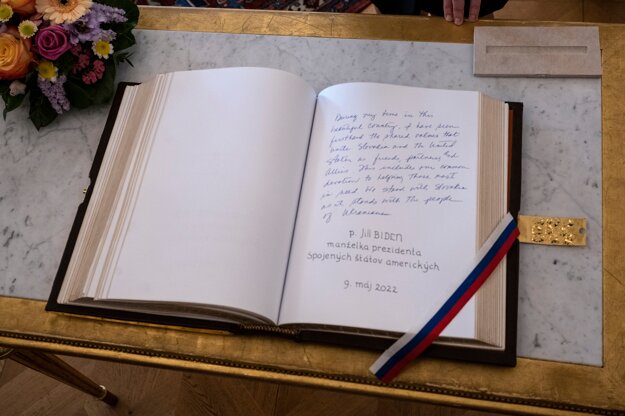 During my time in this
beautiful country, I have seen
firsthand the shared values that
unite Slovakia and the United
States as friends, partners and
Allies. This includes our common
devotion to helping those most
in need. We stand with Slovakia
as it stands with the people
of Ukraine
p. Jill BIDEN
manželka prezidenta
Spojených štátov amerických
9. máj 2022